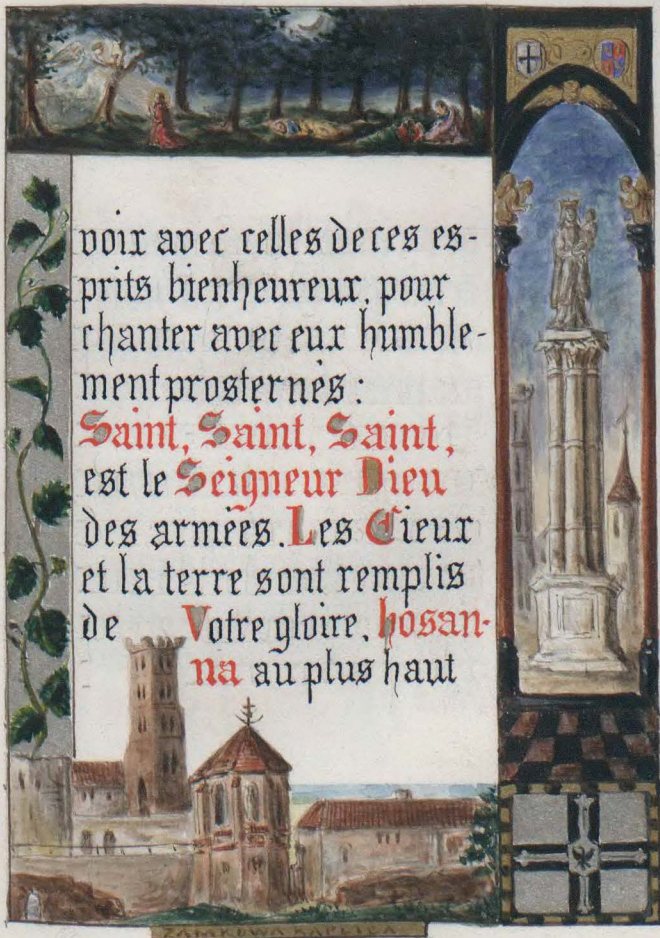 voix avec celles de ces es-
prits bienheureux, pour
chanter avec eux humble-
ment prosternés :
Saint, Saint, Saint,
est le Seigneur Dieu
des armées. Les Cieux
et la terre sont remplis
de Votre gloire, hosan-
na au plus haut
ZAMKOWA KAPLICA